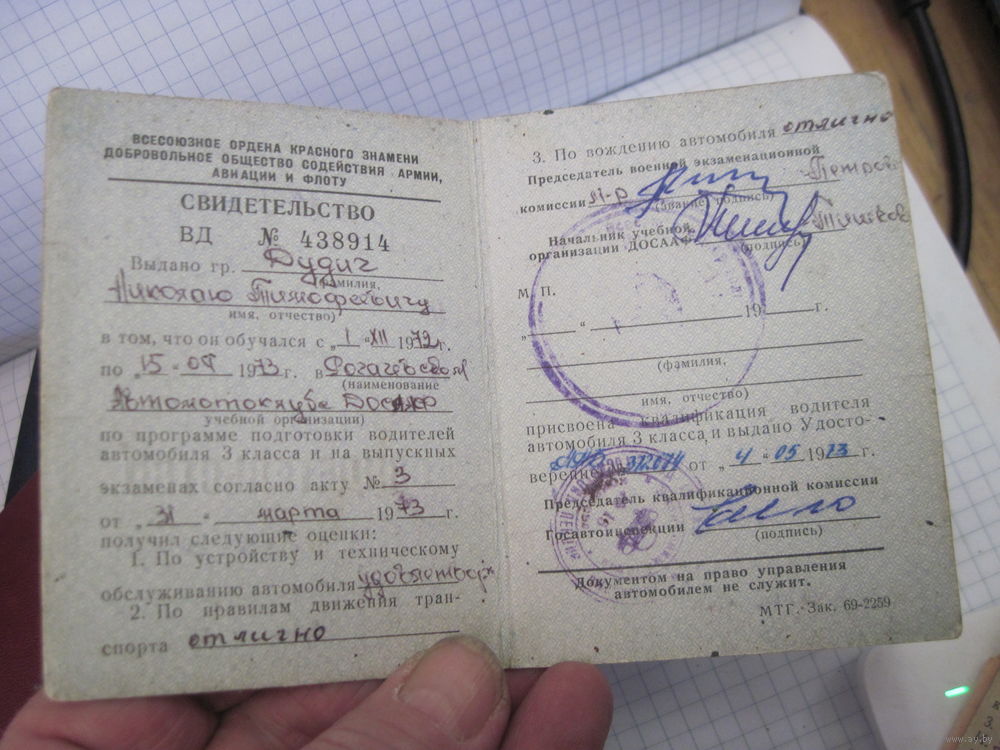 ВСЕСОЮЗНОЕ ОРДЕНА КРАСНОГО ЗНАМЕНИ
ДОБРОВОЛЬНОЕ ОБЩЕСТВО СОДЕЙСТВИЯ АРМИИ,
АВИАЦИИ И ФЛОТУ
СВИДЕТЕЛЬСТВО
ВД № 438914
Выдано гр. Дудич
(фамилия,
Николаю Тимофеевичу
имя, отчество)
в том, что он обучался с „1 “ XII 1972 г.
по „15 “ 1973 г. в Рогачевском
(наименование
Автомотоклубе ДОСААФ
учебной организации)
по программе подготовки водителей
автомобиля 3 класса и на выпускных
экзаменах согласно акту № 3
от „31 “ марта 1973 г.
получил следующие оценки:
1. По устройству и техническому
обслуживанию автомобиля удовлетвор
2. По правилам движения тран-
спорта отлично
3. По вождению автомобиля отлично
Председатель военной экзаменационной
комиссии Петров
(звание, подпись)
Начальник учебной
организации ДОСААФ
(подпись)
М. П.
„ “ 19 г.
(фамилия,
имя, отчество)
присвоена квалификация водителя
автомобиля 3 класса и выдано Удосто-
верение от „4 “ 05 1973 г.
Председатель квалификационной комиссии
Госавтоинспекции
(подпись)
Документом на право управления
автомобилем не служит.
МТГ. Зак. 69-2259
www.ay.by